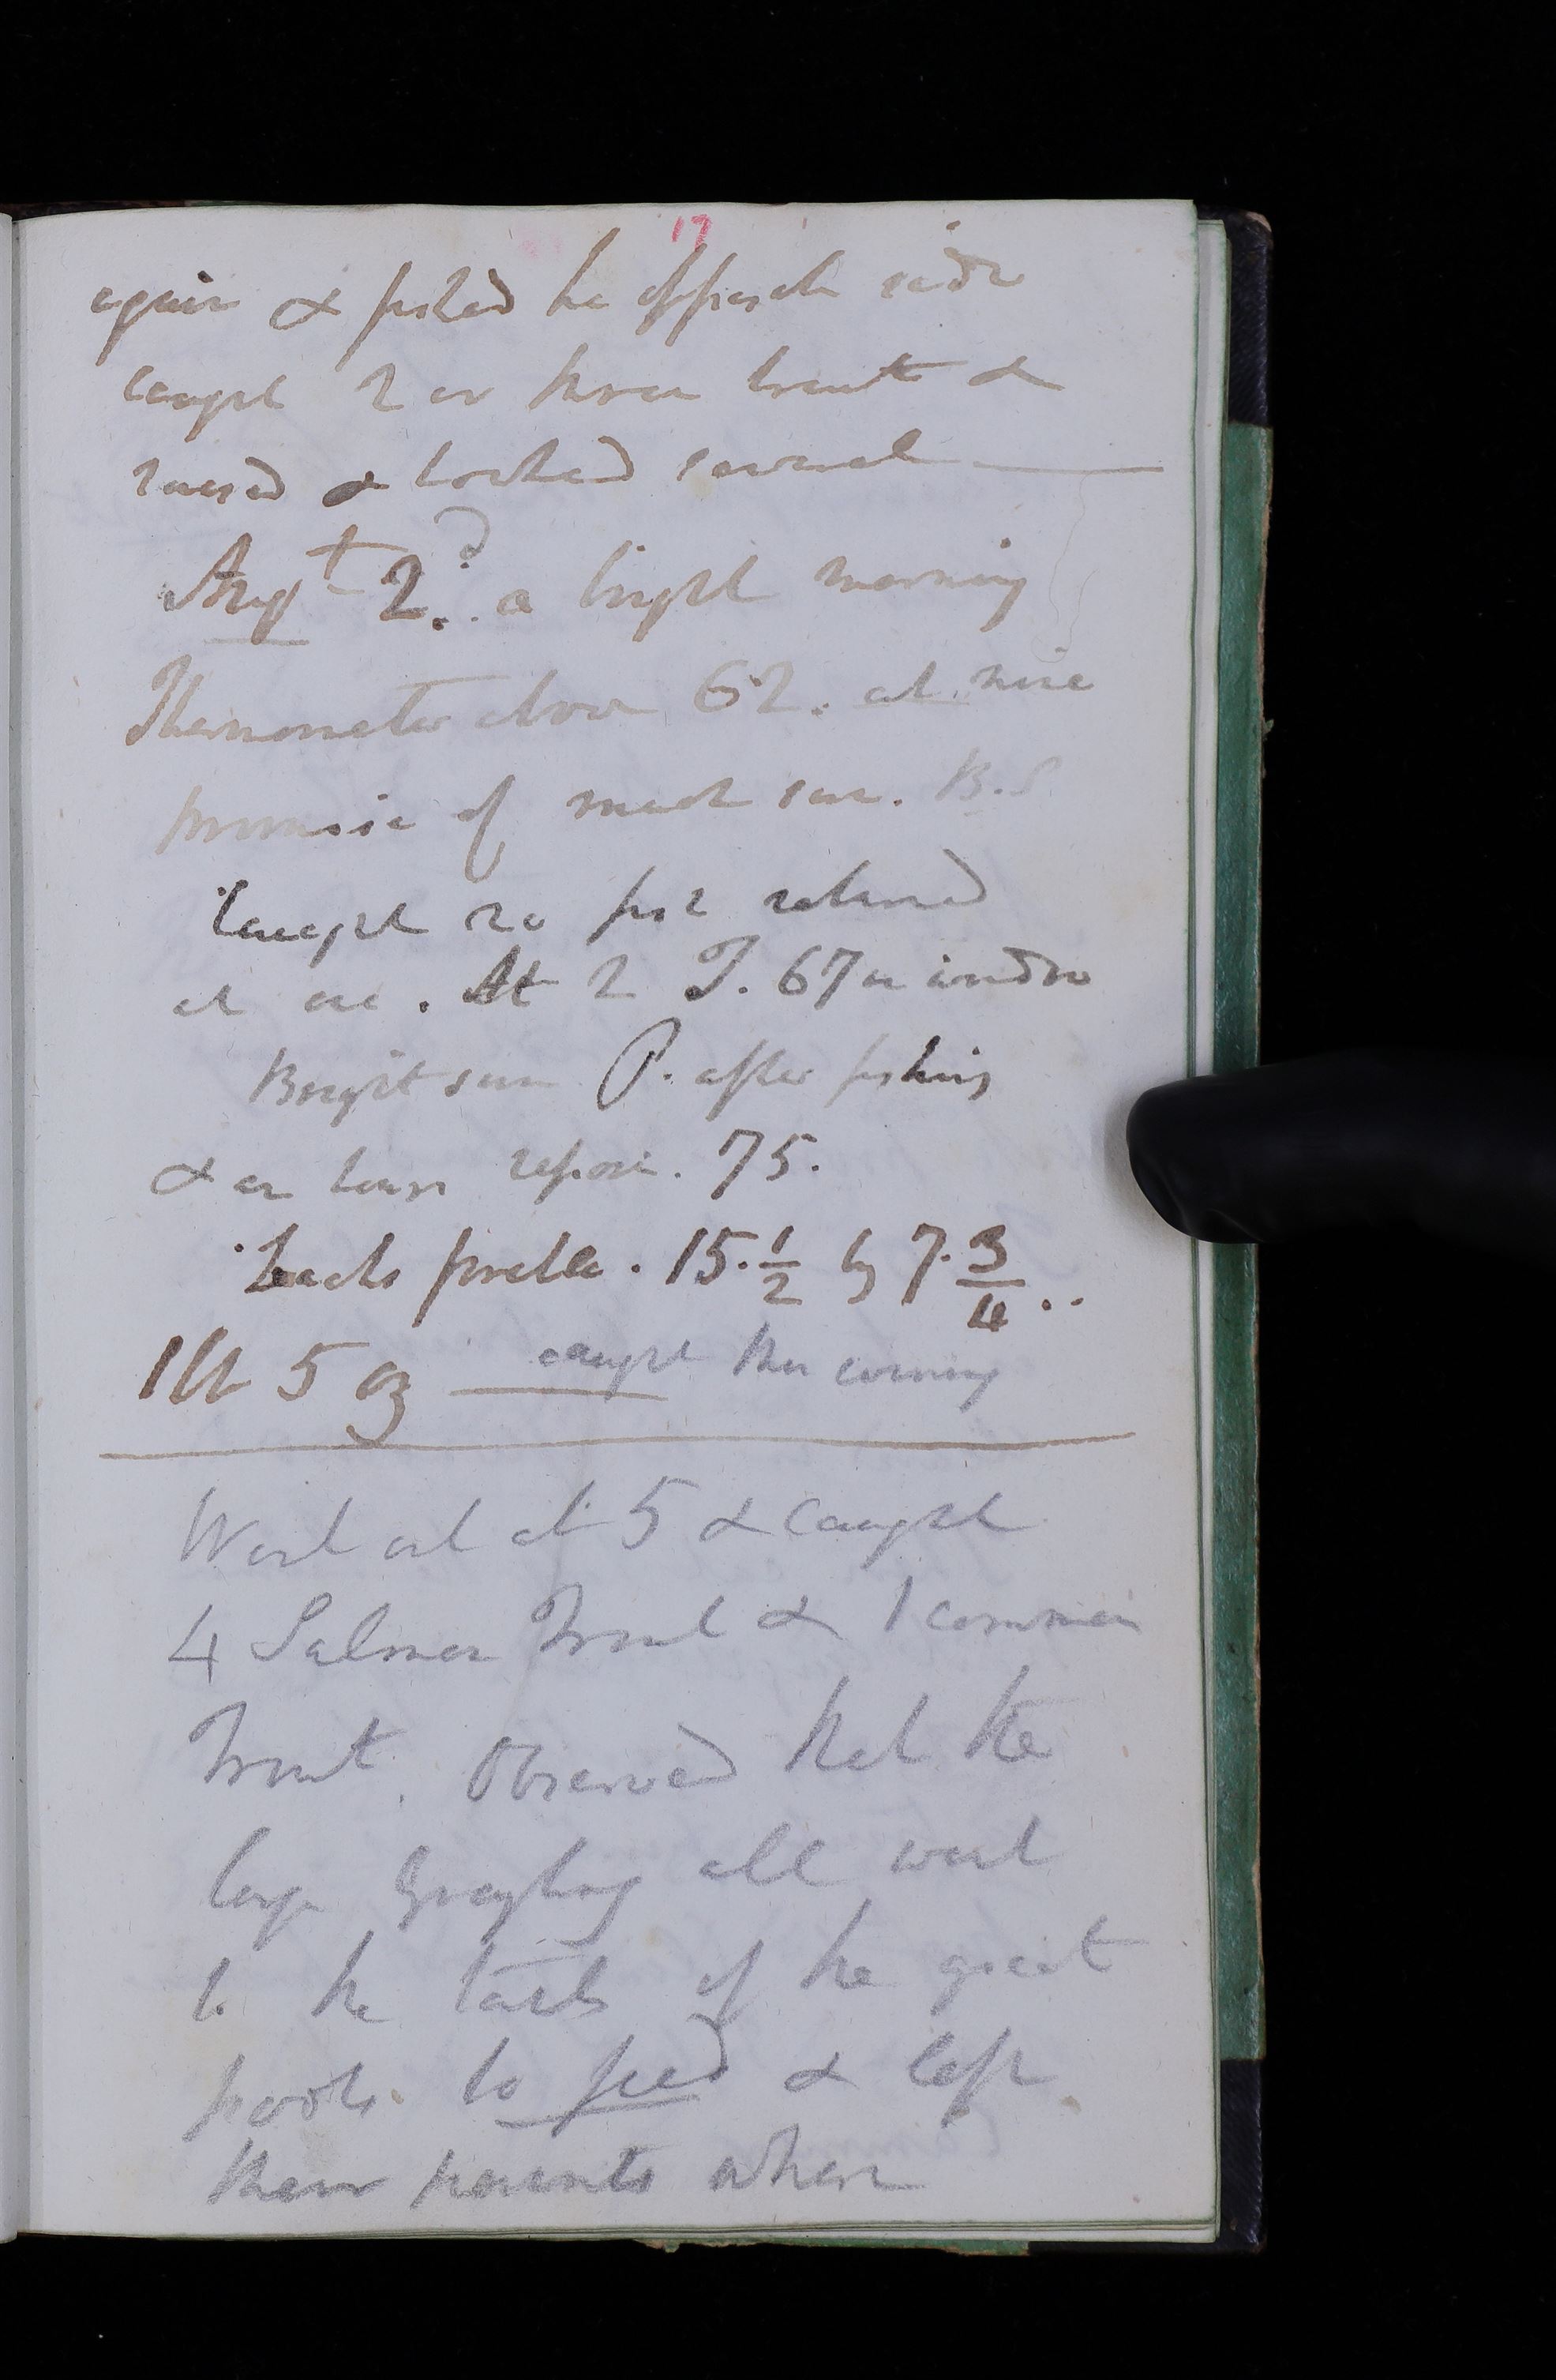 17
again & fished the opposite side
caught 2 or three trout &
raised & hooked several
Augt 2.d a bright morning
Thermometer above 62. at nine
promise of much sun. B.S
Caught no fish returned
at one. At 2 T. 67 in window
Bright sun P. after fishing
& an hours repose. 75.
Lacks forelle. 15.1/2 by 7.3/4..
1lb 5 oz caught this evening
Went out at 5 & caught
4 Salmon Trout & 1 common
Trout. Observed that the
large Grayling all went
to the tails of the great
pools to feed & left
their haunts where